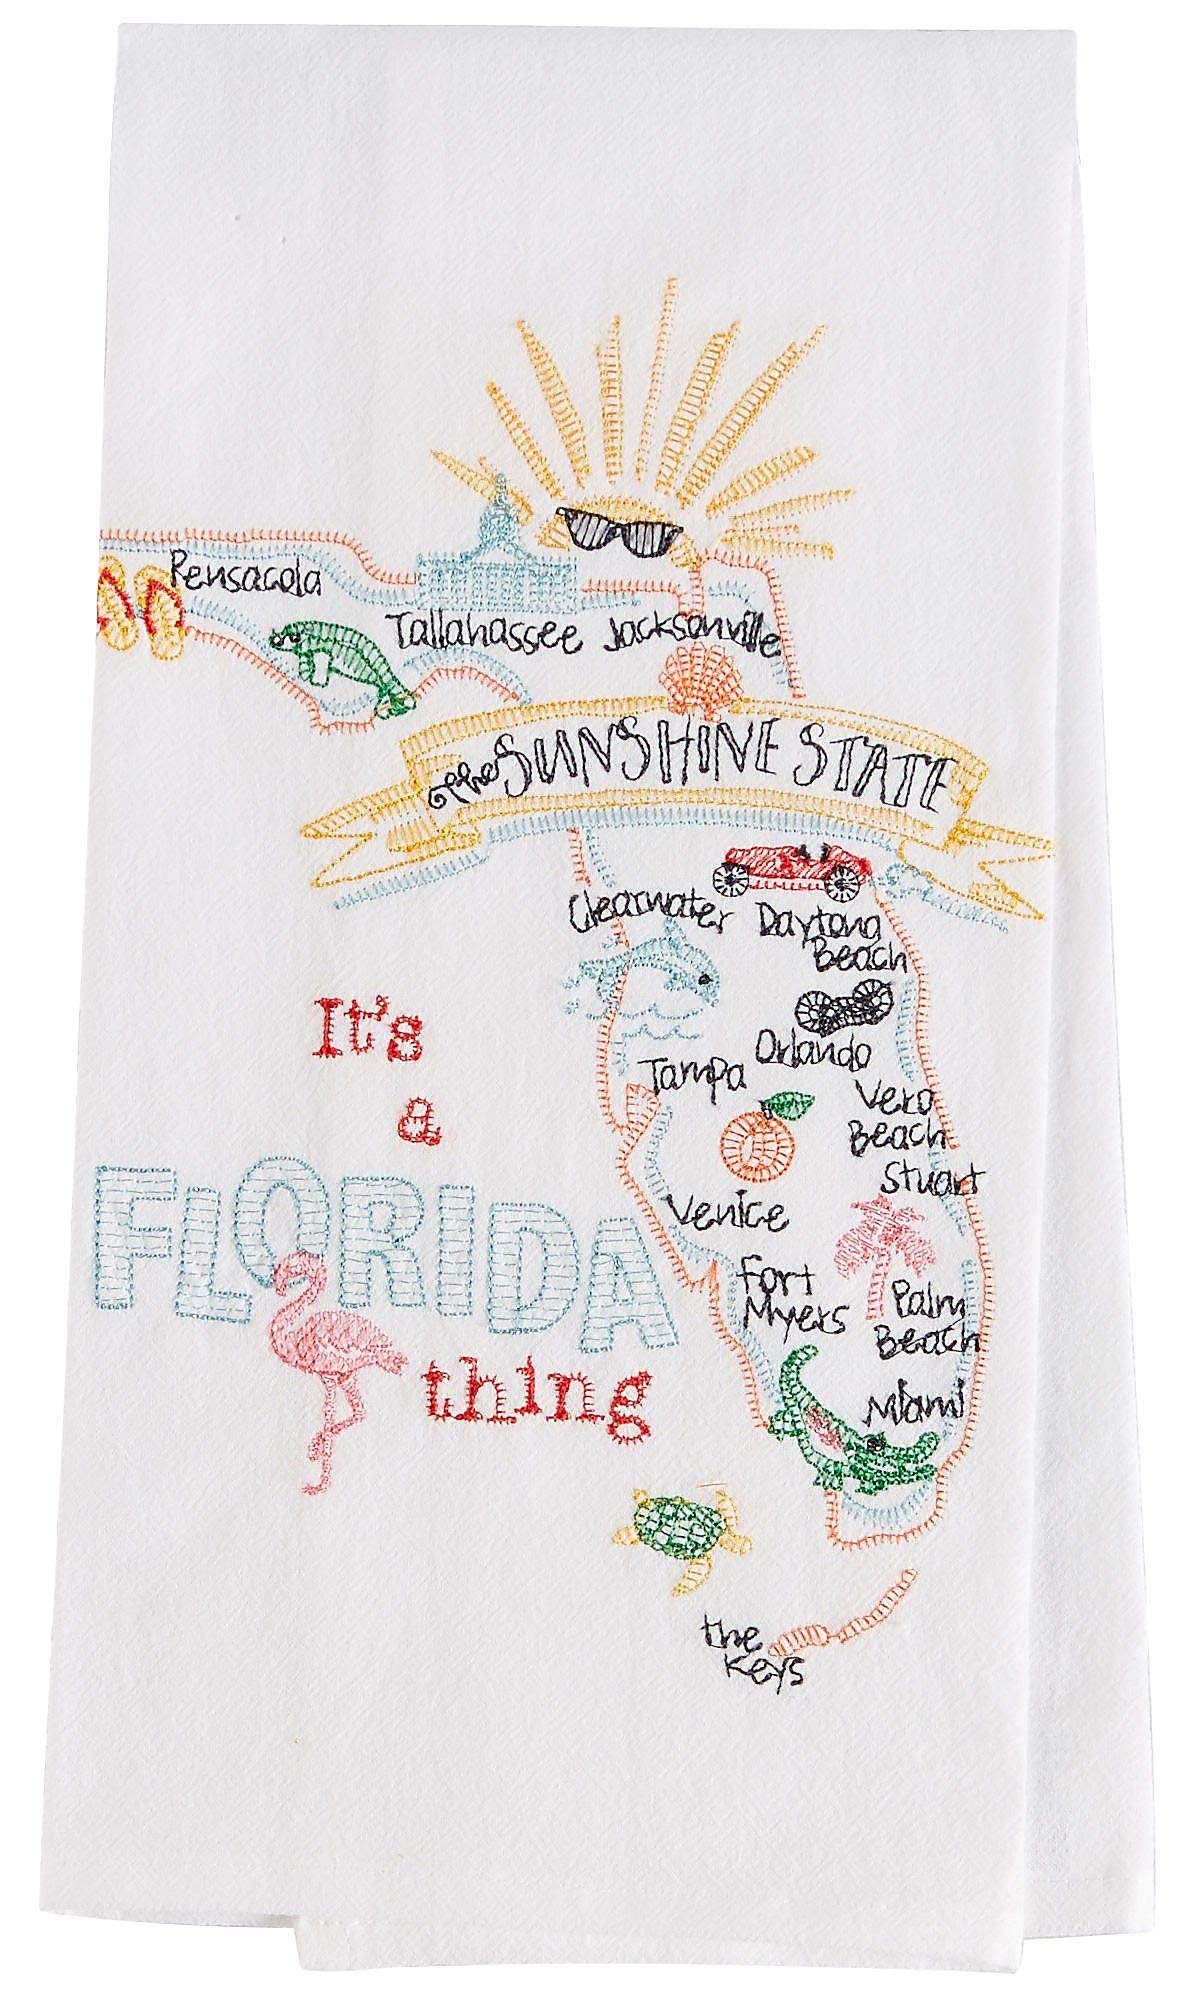 Pensacola
Tallahassee Jacksonville
the SUNSHINE STATE
Clearwater
Daytona
Beach
Orlando
Tampa
Vero
Beach
Stuart
Venice
Fort
Myers
Palm
Beach
Miami
the
Keys
It's
a
FLORIDA
thing